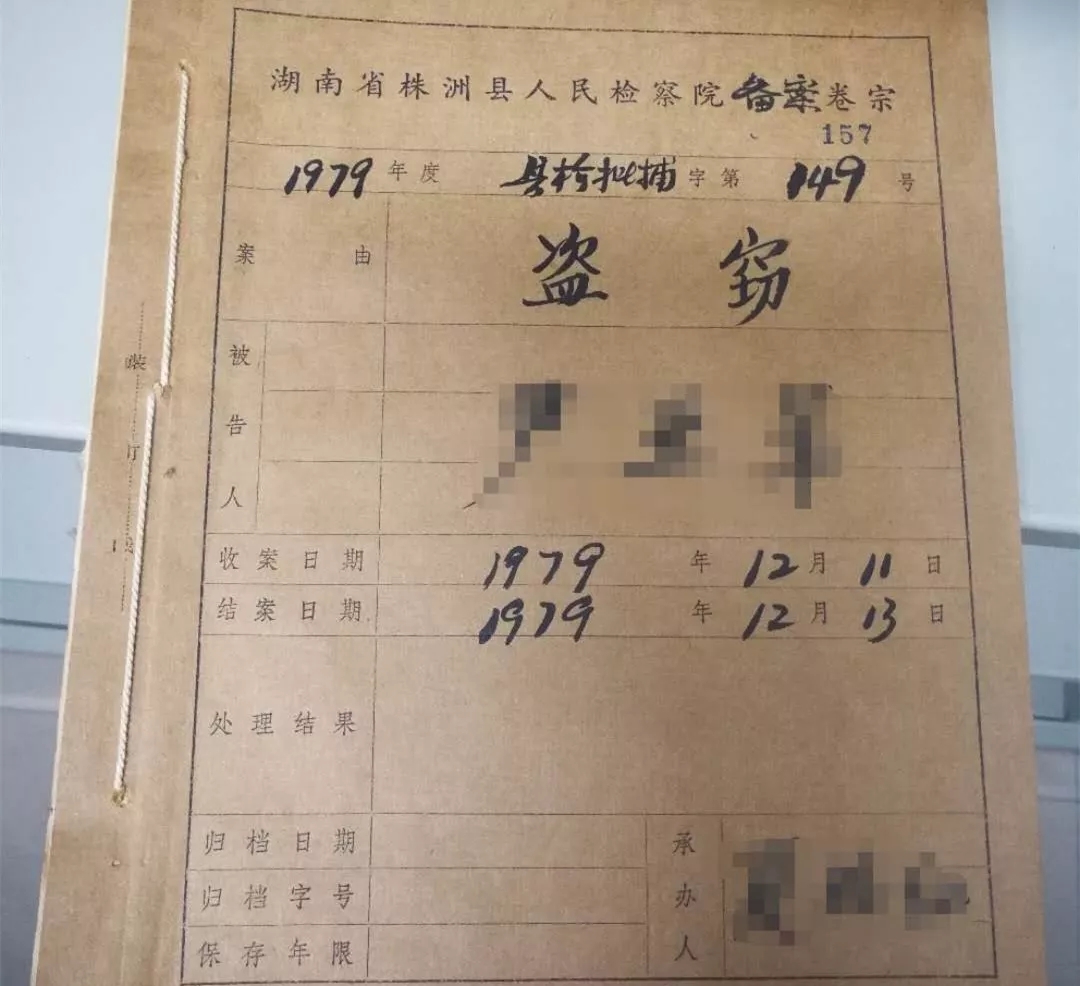 湖南省株洲县人民检察院备案卷宗
157
1979年度 县检批捕字第149号
案由 盗窃
被告人
收案日期 1979年12月11日
结案日期 1979年12月13日
处理结果
归档日期
归档字号
保存年限
承办人
装
订